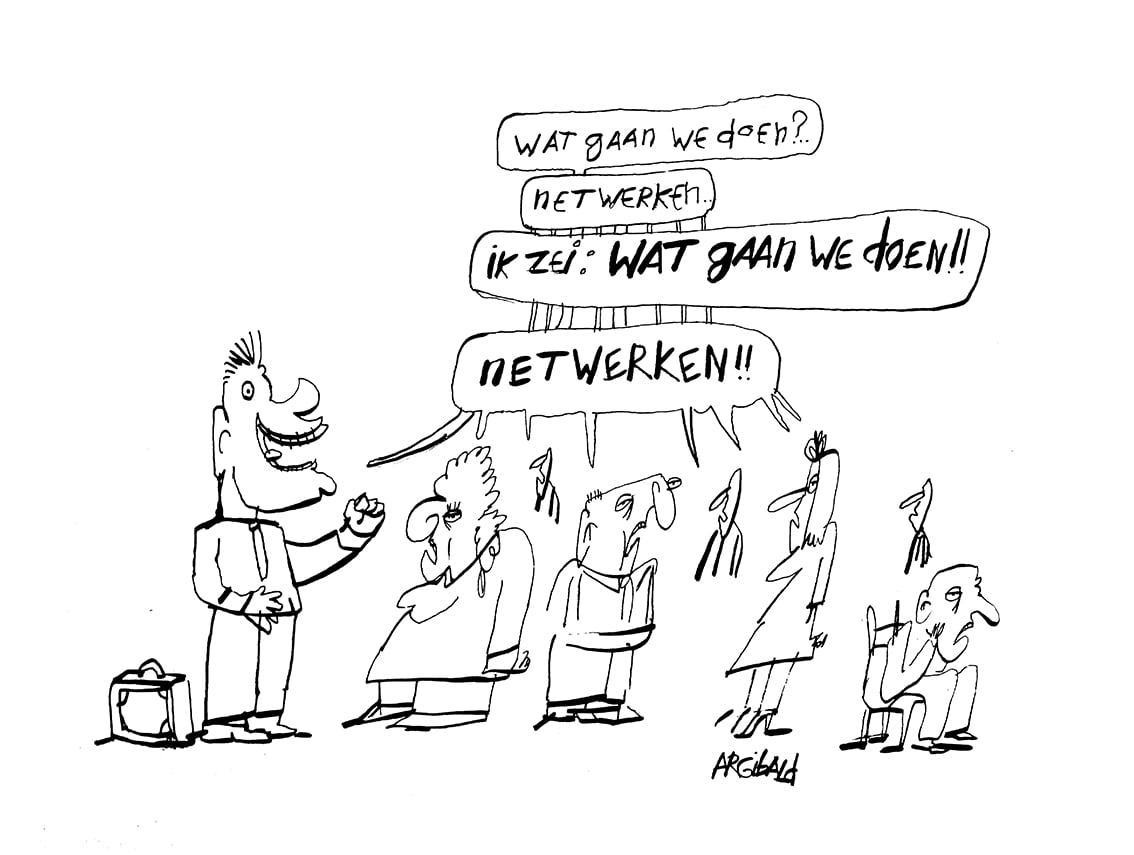 WAT gAAn WE doEn?..
nETWERKEn..
iK ZEi: WAT gAAn WE doEN!!
nETWERKEN!!
ARGibALd